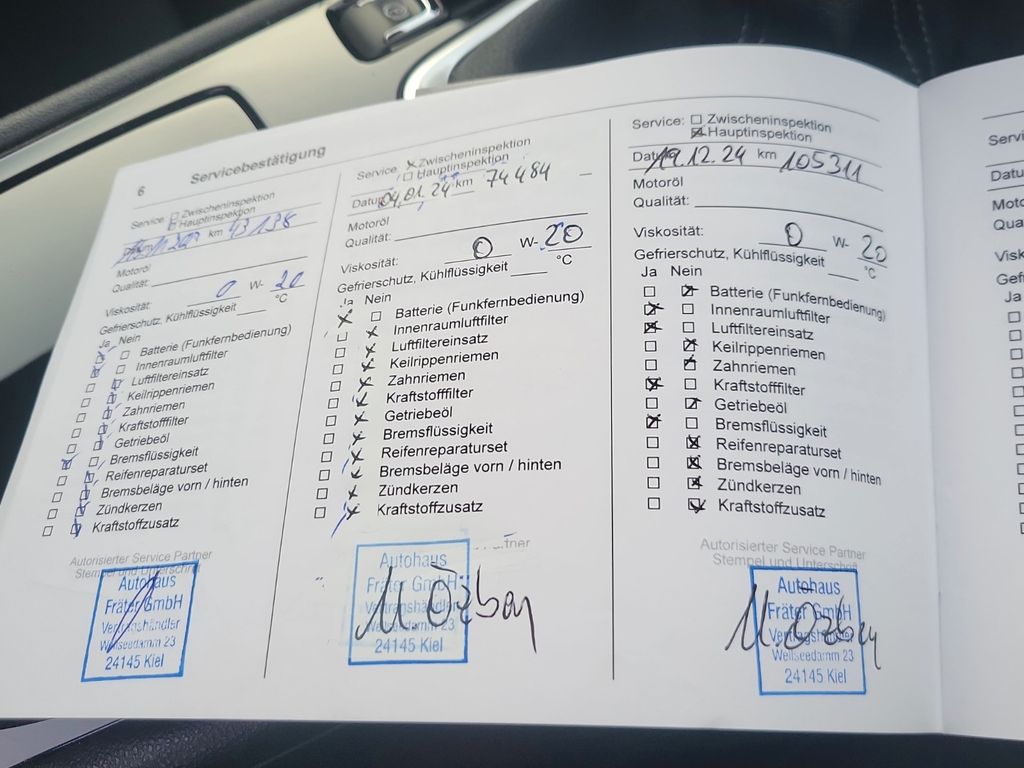 6 Servicebestätigung
Service: Zwischeninspektion
Hauptinspektion
km 43138
Motoröl
Qualität:
Viskosität: 0 W- 20
Gefrierschutz, Kühlflüssigkeit °C
Ja Nein
Batterie (Funkfernbedienung)
Innenraumluftfilter
Luftfiltereinsatz
Keilrippenriemen
Zahnriemen
Kraftstofffilter
Getriebeöl
Bremsflüssigkeit
Reifenreparaturset
Bremsbeläge vorn / hinten
Zündkerzen
Kraftstoffzusatz
Autorisierter Service Partner
Stempel und Unterschrift
Autohaus
Fräter GmbH
Vertragshändler
Wellseedamm 23
24145 Kiel
Service: Zwischeninspektion
Hauptinspektion
Datum 04.01.24 km 74484
Motoröl
Qualität:
Viskosität: 0 W- 20
Gefrierschutz, Kühlflüssigkeit °C
Ja Nein
Batterie (Funkfernbedienung)
Innenraumluftfilter
Luftfiltereinsatz
Keilrippenriemen
Zahnriemen
Kraftstofffilter
Getriebeöl
Bremsflüssigkeit
Reifenreparaturset
Bremsbeläge vorn / hinten
Zündkerzen
Kraftstoffzusatz
Autohaus
Fräter GmbH
Vertragshändler
Wellseedamm 23
24145 Kiel
Service: Zwischeninspektion
Hauptinspektion
Datum 19.12.24 km 105311
Motoröl
Qualität:
Viskosität: 0 W- 20
Gefrierschutz, Kühlflüssigkeit °C
Ja Nein
Batterie (Funkfernbedienung)
Innenraumluftfilter
Luftfiltereinsatz
Keilrippenriemen
Zahnriemen
Kraftstofffilter
Getriebeöl
Bremsflüssigkeit
Reifenreparaturset
Bremsbeläge vorn / hinten
Zündkerzen
Kraftstoffzusatz
Autorisierter Service Partner
Stempel und Unterschrift
Autohaus
Fräter GmbH
Vertragshändler
Wellseedamm 23
24145 Kiel